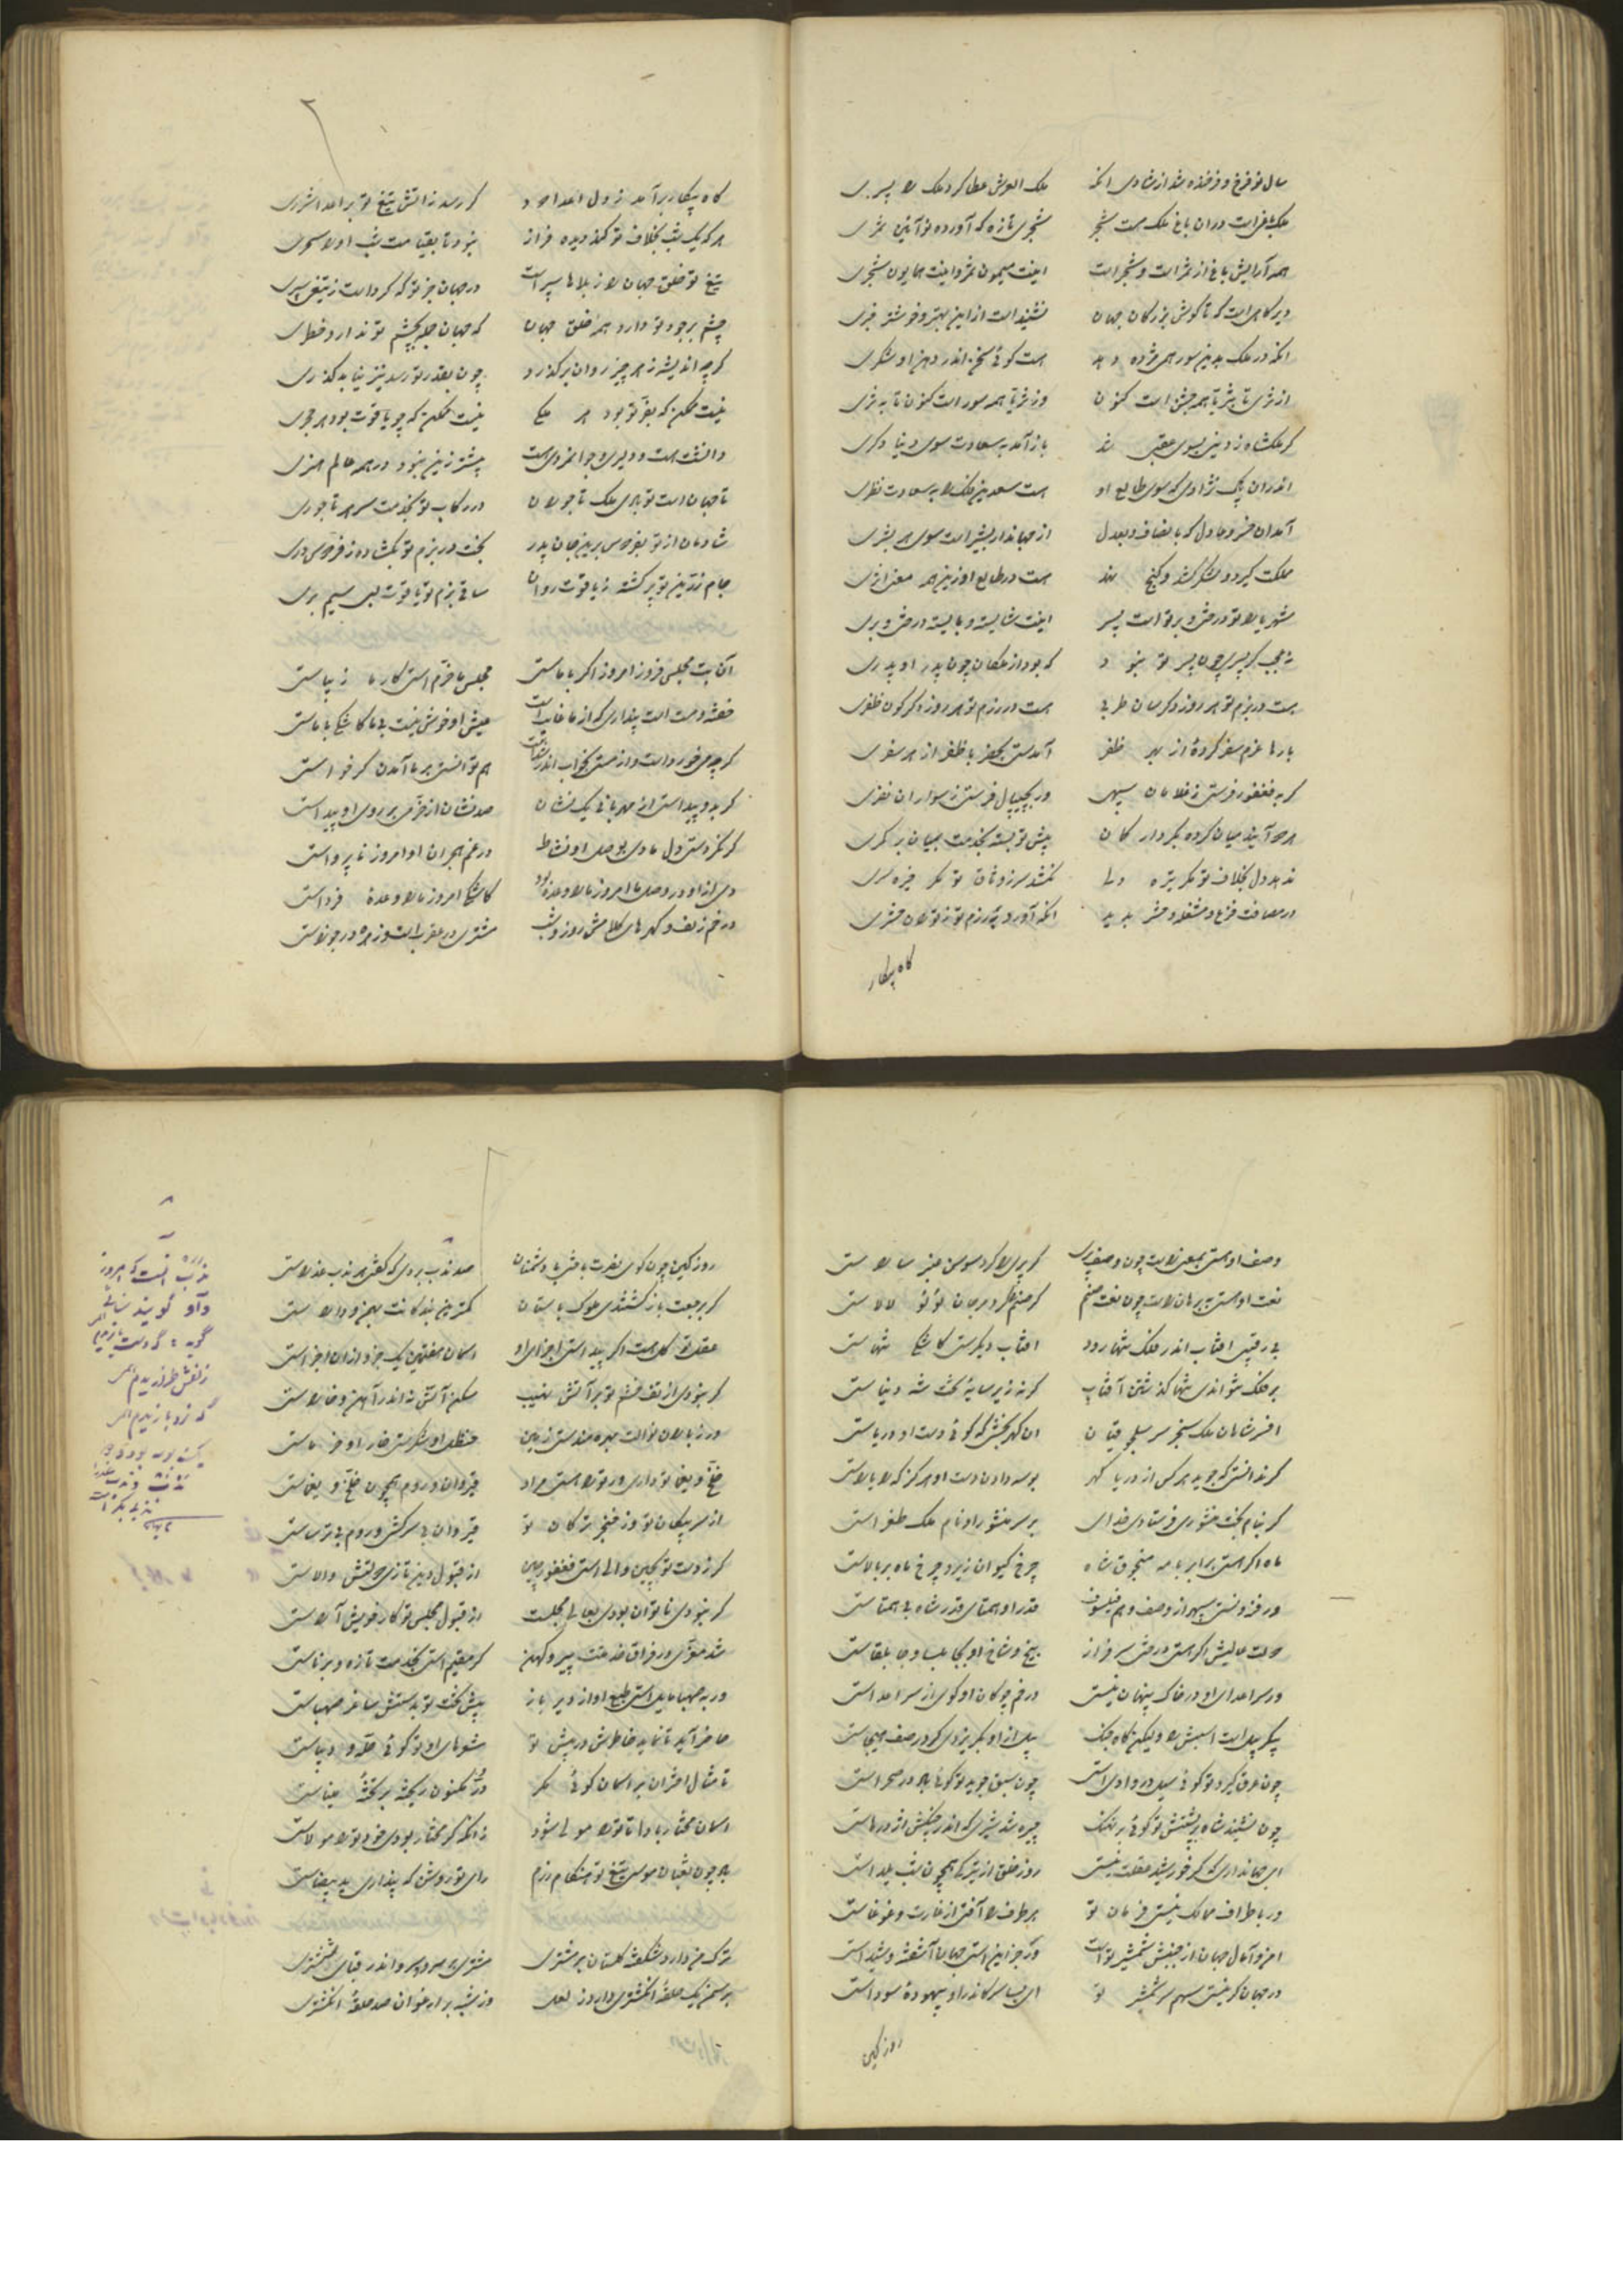 سال نو فرخ و فرخنده شد از شادی آنکه ملک العرش عطا کرد ملک را پسری
ملک باغ است در آن باغ ملک هست شجر شجری تازه که آورد نو آئین ثمری
همه آرایش باغ از ثمر است و شجر است اینت میمون ثمر و اینت همایون شجری
دیرگاهی است که تا گوش بزرگان جهان نشنید است از این بهتر و خوشتر خبری
آنکه در ملک بدین سور همی مژده دهد هست گوئی سخن اندر دهن او شکری
از ثری تا بثریا همه جشن است کنون وز ثریا همه سور است کنون تا به ثری
گر ملکشاه ز دنیی بسوی عقبی شد باز آمد به سعادت سوی دنیا دگری
اندر آن پاک نژادی که سوی طالع او هست سعدین فلک را به سعادت نظری
آمد آن خسرو عادل که بانصاف و بعدل از جهاندار بشیر است سوی هر بشری
مملکت گیرد و لشکر کشد و گنج نهد هست در طالع او زین همه معنی اثری
شهریارا تو درختی و بر تو است پسر اینت شایسته و بایسته درختی و بری
نه عجب گر پسری چون پسر تو نبود که بود از ملکان چون پدر او پدری
هست در بزم تو هر روز دگر سان طربی هست در رزم تو هر روز دگرگون ظفری
بارها عزم سفر کردهٔ از بهر ظفر آمدستی بحضر با ظفر از هر سفری
گر به فغفور فرستی ز غلامان سپهی ور بجیپال فرستی ز سواران نفری
هر دو آیند میان کرده بکردار کمان پیش تو بسته بخدمت بمیان بر کمری
ندهد دل بخلاف تو مگر تیره دلی نکشد سر ز وفاق تو مگر خیره سری
در مصافت فزع و مشغله حشر پدید آنکه آورد به رزم تو ز توران حشری
گاه پیکار
گاه پیکار برآمد ز دل اعدا دود گر رسد ز آتش تیغ تو بر اعدا شرری
هر که یک شب بخلاف تو کند دیده فراز نبود تا بقیامت شب او را سحری
تیغ تو خلق جهان را ز بلاها سپر است در جهان جز تو که کرد است ز تیغی سپری
چشم بر جود تو دارد همه خلق جهان که جهان جمله بچشم تو ندارد خطری
گر چه اندیشه ز هر چیز روان برگذرد چون بقدر تو رسد نیز نیابد گذری
نیست ممکن که بفر تو بود هر ملکی نیست ممکن که چو یاقوت بود هر حجری
دانشت هست و دلیری و جوانمردی هست بیشتر زین نبود در همه عالم هنری
تا جهان است تو بادی ملک تاجوران در رکاب تو بخدمت سر هر تاجوری
شادمان از تو بفردوس برین جان پدر بخت در بزم تو بگشاده ز فردوس دری
جام زرین تو پر گشته ز یاقوت روان ساقی بزم تو یاقوت لبی سیم بری
آن بت مجلس فروز امروز اگر با ماستی مجلس ما خرم استی کار ما زیباستی
خفته و مست است پنداری که از ما غایب است عیش او خوش نیست بی ما کاشکی با ماستی
گر چه می خورد است و از مستی بخواب اندر شد است هم توانستی بر ما آمدن گر خواستی
گر بدو پیداستی از مهربانی یک نشان صد نشان از خرمی بر روی او پیداستی
گر نکردستی دل ما دی بوصل او نشاط در غم هجران او امروز ناپرواستی
دی از او در وصل ما امروز ما را وعده بود کاشکی امروز ما را وعدهٔ فرداستی
در خم زلف و گهرهای کلاهش روز و شب مشتری در عقرب است و زهره در جوزاستی
وصف او هستی بمعنی راست چون وصف پری گر پری را گرد سوسن عنبر ساراستی
نعت او هستی به برهان راست چون نعت صنم گر صنم را در مرجان لؤلؤ لالاستی
بی رقیبی آفتاب اندر فلک تنها رود آفتاب دیگرستی کاشکی تنهاستی
بر فلک نتواندی تنها گذشتن آفتاب گر نه زیر سایهٔ تخت شه دنیاستی
افسر شاهان ملک سنجر سر سلجوقیان آن گهر بخشی که گوئی دست او دریاستی
گر ندانستی که جوید هر کسی از دریا گهر بوسه دادن دست او هرگز که را یاراستی
گر بنام بخت منشوری فرستادی خدای بر سر منشور او نام ملک طغراستی
ماه اگر استی برابر با مه منجوق شاه چرخ کیوان زیر و چرخ ماه بر بالاستی
ور فزونستی سپهر از وصف و هم فیلسوف قدر او همتای قدر شاه بی همتاستی
دولت عالیش اگر استی درختی سرفراز بیخ و شاخ او بجابلسا و جابلقاستی
ور سر اعدای او در خاک پنهان نیستی در خم چوگان او گوی از سر اعداستی
پیکر پیل است اسبش را ولیکن گاه جنگ پیل از او بگریزدی گر در صف هیجاستی
چون عرق گیرد تو گوئی سیل در وادی استی چون سبق جوید تو گوئی باد در صحراستی
چون نشیند شاه بر پشتش تو گوئی بر نهنگ چیره شد شیری که اندر چنگش اژدرهاستی
ای جهانداری که گر خورشید عقلت نیستی روز خلق از تیرگی همچون شب یلداستی
ور باطراف ممالک نیستی فرمان تو هر طرف را آفتی از غارت و غوغاستی
امن و آمال جهان از جنبش شمشیر تو است ور جز این استی جهان آشفته و شیداستی
در جهان گر نیستی سهم سر شمشیر تو ای بسا سر کاندر او بیهودهٔ سوداستی
روز کین
روز کین چون گوی نصرت باختی با دشمنان صد ندب بردی که گفتی هر ندب عذراستی
گر برجعت باز گشتندی ملوک باستان کمترینه بندگانت بهمن و داراستی
عقل تو کل است اگر پیداستی اجزای او آسمان هفتمین یک جزو از آن اجزاستی
گر نبودی از تف خشم تو بر آتش نهیب مسکن آتش نه اندر آهن و خاراستی
ور ز باران نوالت بهره مندستی زمین حنظل او شکرستی خار او خرماستی
خلخ و یغما تو داری ور تو را هستی مراد قیروان و روم همچون خلخ و یغماستی
از سر پیکان تو وز خنجر ترکان تو قیروان بی سرکش و روم بی ترساستی
گر ز دست تو بچین والی استی فغفور چین از قبول دین تازی دولتش والاستی
گر نبودی ناتوان بودی بعالی مجلست از قبول مجلس تو کار خویش آراستی
شد معزی در فراق خدمتت پیر و کهن گر مقیم استی بخدمت تازه و برناستی
ور به صهبا مایل استی طبع او از دیر باز پیش تخت تو بدستش ساغر صهباستی
حاضر آید تا نماید خاطرش در پیش تو شعرهای او تو گوئی حله و دیباستی
تا مثال اختران بر آسمان گوئی مگر در مکنون ریخته بر تختهٔ میناستی
آسمان مختار بادا تا تو را مولی شود زانکه گر مختار بودی خود تو را مولاستی
باد چون ثعبان موسی تیغ تو هنگام رزم رای تو روشن که پنداری ید بیضاستی
ترک من دارد شکفته گلستان بر مشتری مشتری بر سرو و سرو اندر قبای ششتری
بر سمن یک حلقهٔ انگشتری دارد ز لعل وز شبه بر ارغوان صد حلقهٔ انگشتری